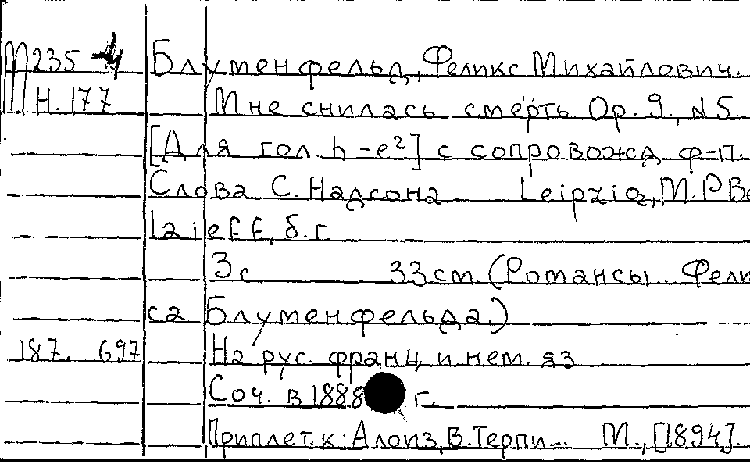 М235-4 Блуменфельд, Феликс Михайлович.
Н.177 Мне снилась смерть Ор. 9, №5
[Для гол. h-e²] с сопровожд ф-п.
Слова С. Надсона Leipzig, M. P Be
laieff, б. г.
3 с 33 см. (Романсы Фели
са Блуменфельда.)
187 697 На рус. франц и нем. яз
Соч. в 1888 г.
Приплет. к: Алоиз, В. Терпи... М., [1894].